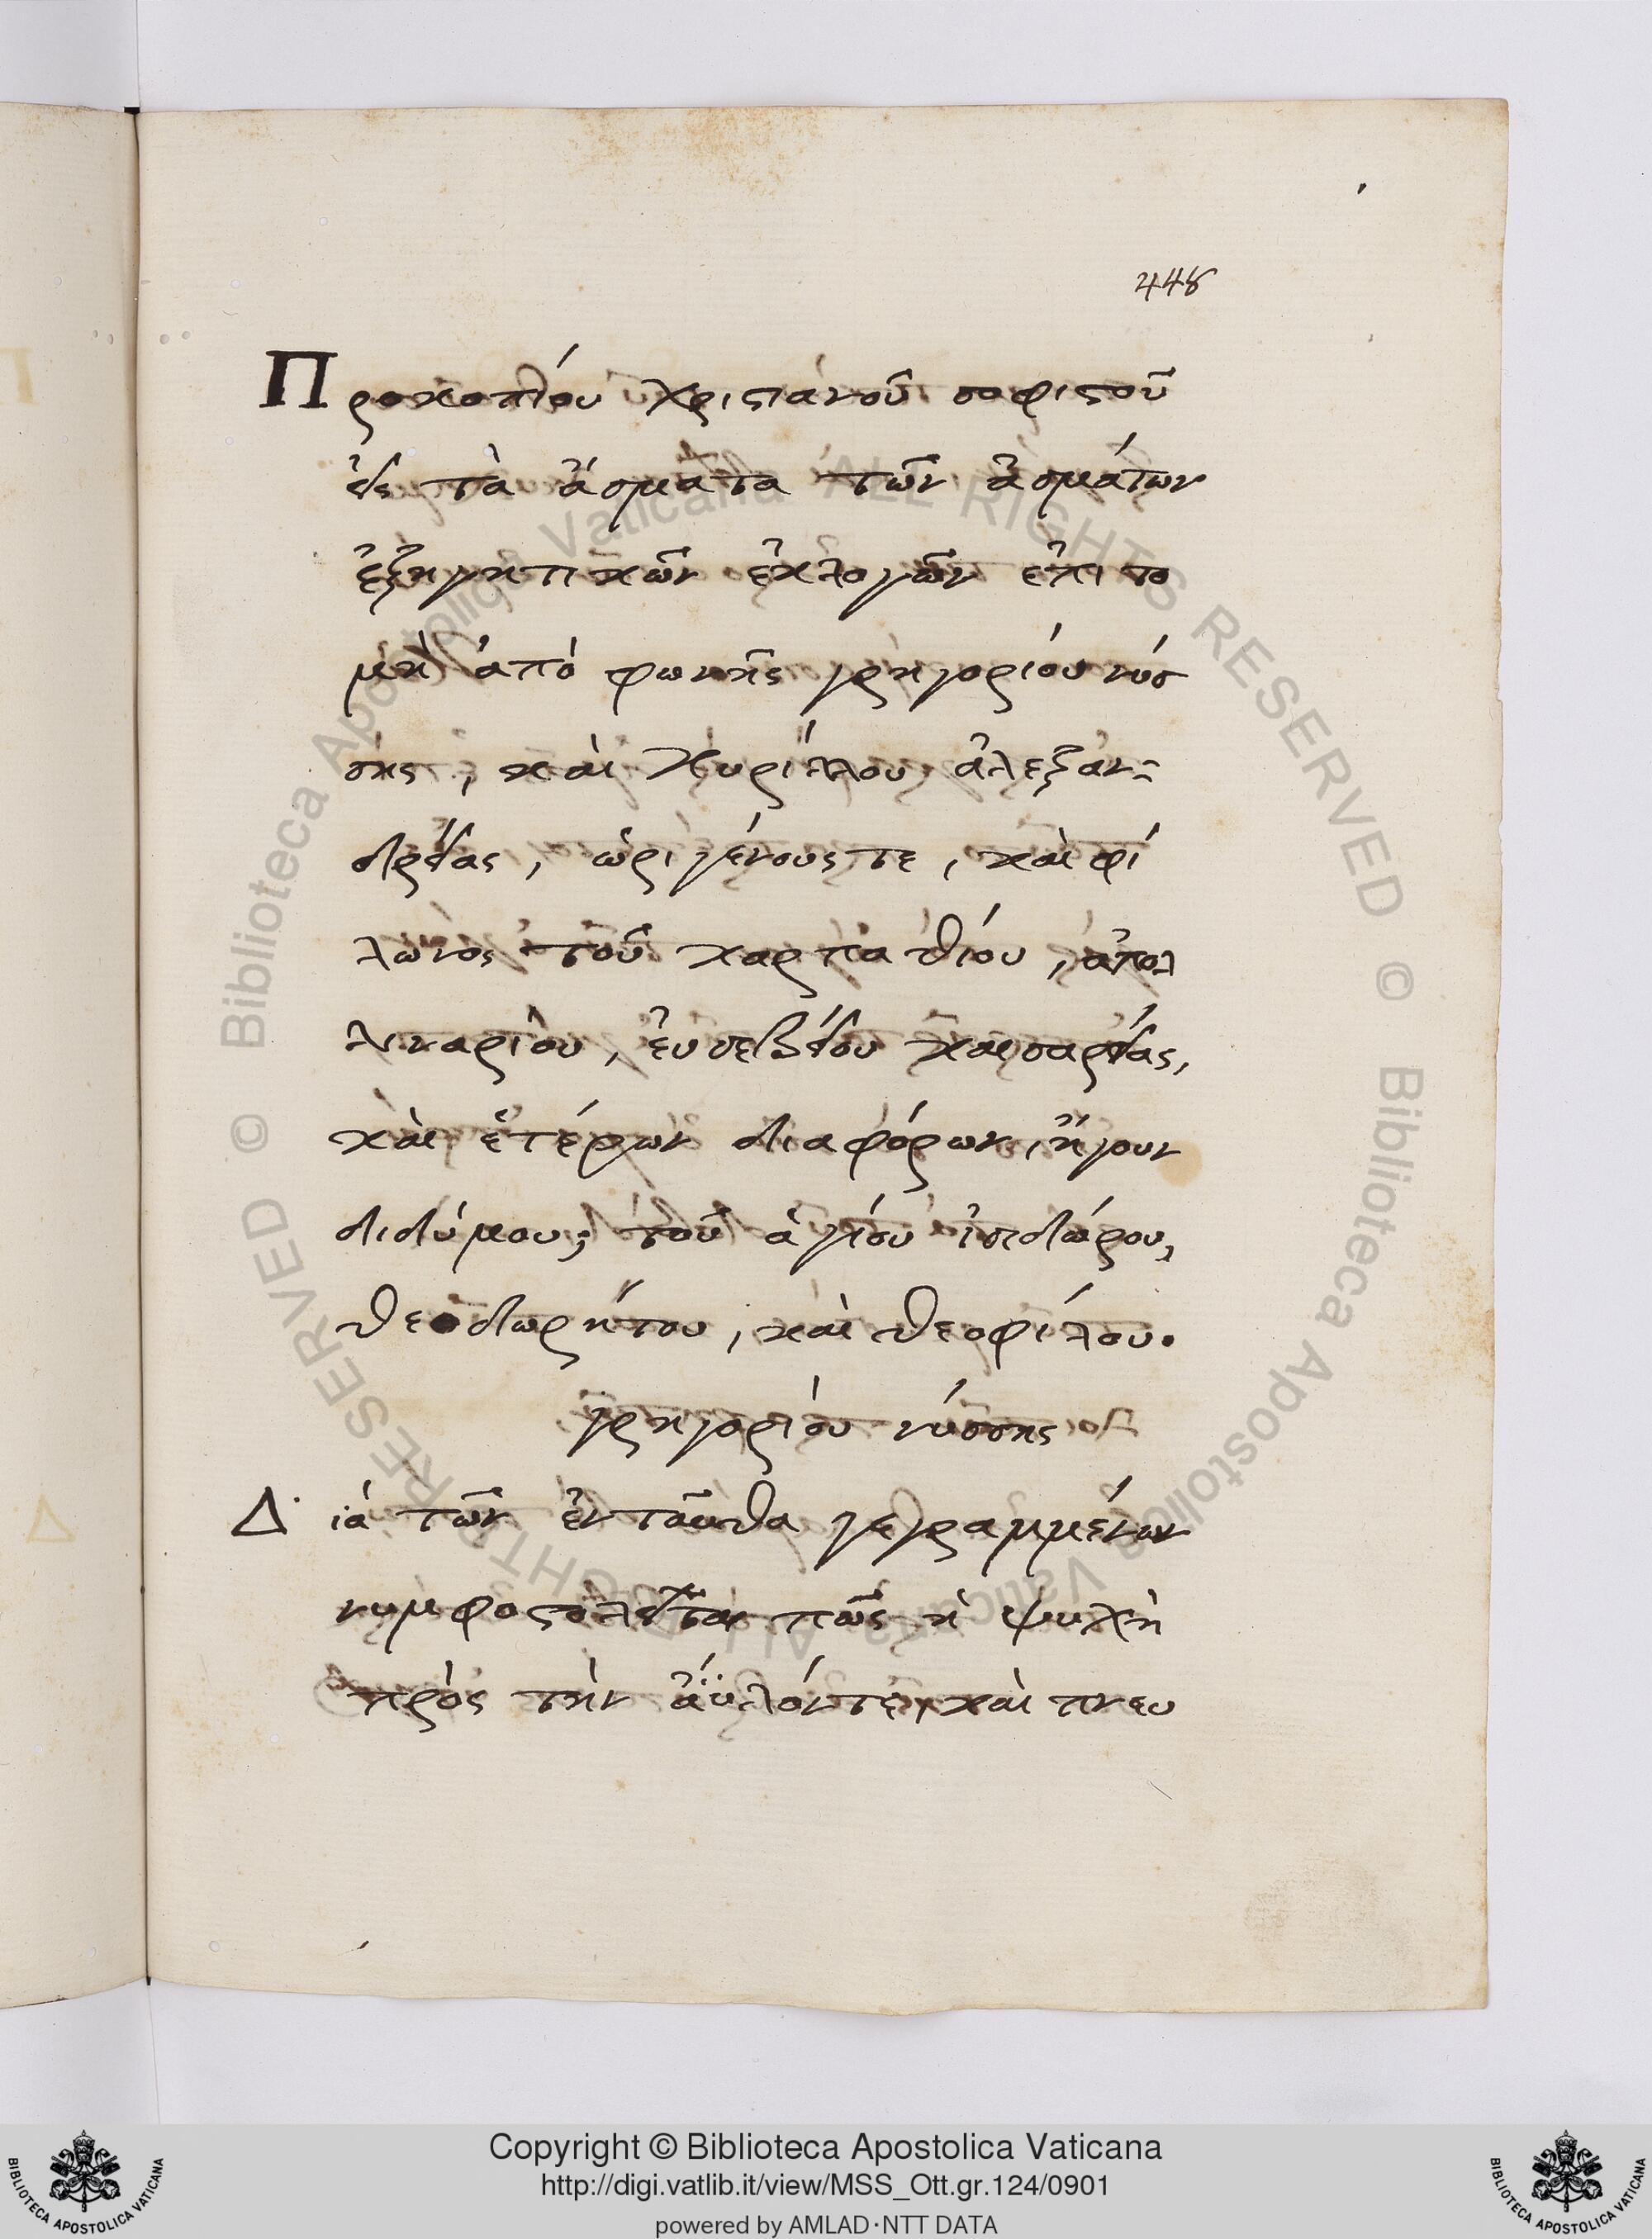 448
Προκοπίου χριστιανοῦ σοφιστοῦ
εἰς τὰ ἄσματα τῶν ἀσμάτων
ἐξηγητικῶν ἐκλογῶν ἐπιτο
μὴ ἀπὸ φωνῆς γρηγορίου νύσ
σης, καὶ κυρίλλου ἀλεξαν-
δρείας, ὠριγένους τε, καὶ φί
λωνος τοῦ καρπαθίου, ἀπολ
λιναρίου, ἐυσεβείου καισαρείας,
καὶ ἑτέρων διαφόρων, ἤγουν
διδύμου, τοῦ ἁγίου ἰσιδώρου,
θεοδωρήτου, καὶ θεοφίλου.
γρηγορίου νύσσης
Διὰ τῶν ἐνταῦθα γεγραμμένων
νυμφοστολεῖται πῶς ἡ ψυχὴ
πρὸς τὴν ἀϋλόν τε, καὶ πνευ
© Biblioteca Apostolica Vaticana ALL RIGHTS RESERVED © Biblioteca Apostolica Vaticana ALL RIGHTS RESERVED
Copyright © Biblioteca Apostolica Vaticana
http://digi.vatlib.it/view/MSS_Ott.gr.124/0901
powered by AMLAD·NTT DATA
BIBLIOTECA APOSTOLICA VATICANA
BIBLIOTECA APOSTOLICA VATICANA